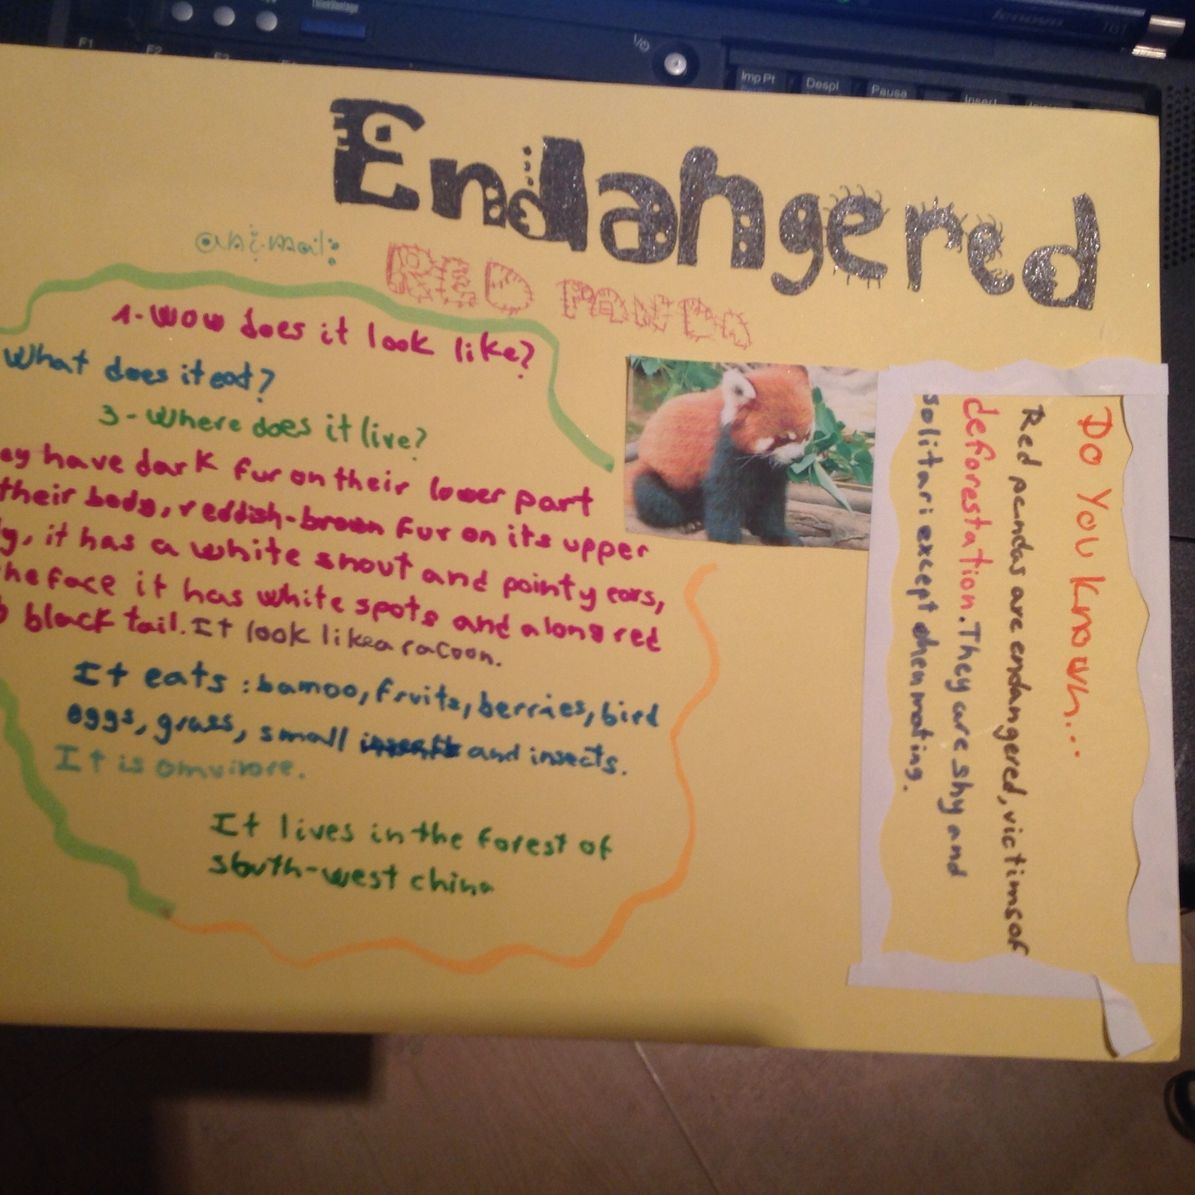 ThinkVantage
lenovo
F1
F2
Imp Pt
Despl
Pausa
Insert
Endangered
animal:
RED PANDA
1-Wow does it look like?
What does it eat?
3-Where does it live?
have dark fur on their lower part
their body, reddish-brown fur on its upper
it has a white snout and pointy ears,
face it has white spots and along red
black tail. It look like a racoon.
It eats: bamoo, fruits, berries, bird
eggs, grass, small and insects.
It is omvirore.
It lives in the forest of
south-west china
Do You Known...
Red pendas are endangered, victims of
deforestation. They are shy and
solitari except when mating.